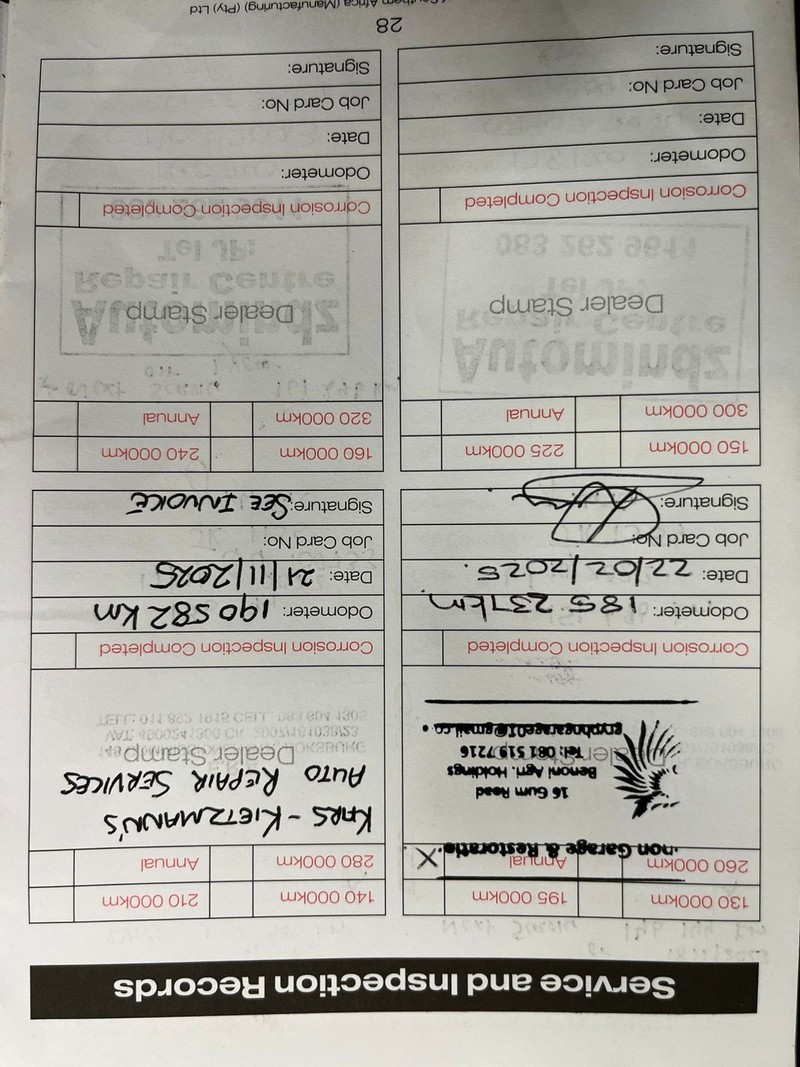 Service and Inspection Records
130 000km 195 000km
260 000km Annual X
Garage &
16 Gum Road
Benoni Agri. Holdings
Tel: 081 519 7216
Corrosion Inspection Completed
Odometer: 185 237km
Date: 22/02/2025.
Job Card No:
Signature:
140 000km 210 000km
280 000km Annual
KARS - KIETZMANN'S
AUTO REPAIR SERVICES
Dealer Stamp
Corrosion Inspection Completed
Odometer: 190 582 km
Date: 21/11/2025
Job Card No:
Signature: SEE INVOICE
150 000km 225 000km
300 000km Annual
Dealer Stamp
Corrosion Inspection Completed
Odometer:
Date:
Job Card No:
Signature:
160 000km 240 000km
320 000km Annual
Dealer Stamp
Corrosion Inspection Completed
Odometer:
Date:
Job Card No:
Signature:
28
Southern Africa (Manufacturing) (Pty) Ltd